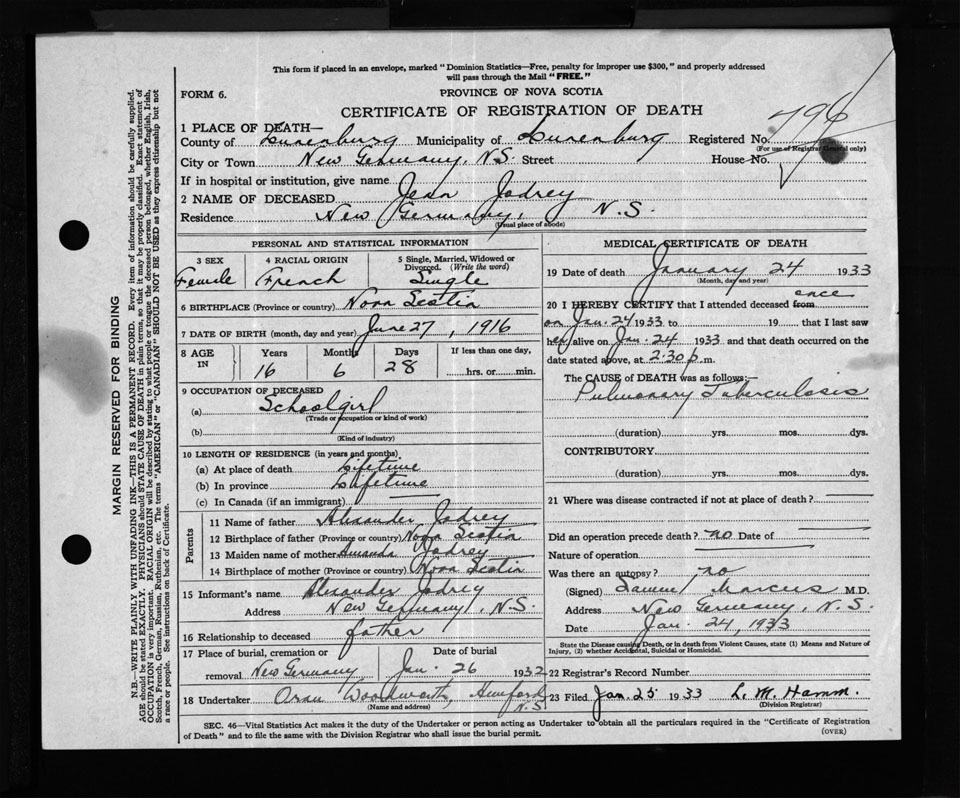 This form if placed in an envelope, marked "Dominion Statistics—Free, penalty for improper use $300," and properly addressed
will pass through the Mail "FREE."
FORM 6.
PROVINCE OF NOVA SCOTIA
CERTIFICATE OF REGISTRATION OF DEATH
1 PLACE OF DEATH—
County of Lunenburg Municipality of Lunenburg Registered No. 496
(For use of Registrar General only)
City or Town New Germany, N.S. Street House No.
If in hospital or institution, give name
2 NAME OF DECEASED Jodrey
Residence New Germany, N.S.
(Usual place of abode)
PERSONAL AND STATISTICAL INFORMATION
3 SEX Female
4 RACIAL ORIGIN French
5 Single, Married, Widowed or Divorced. (Write the word) Single
6 BIRTHPLACE (Province or country) Nova Scotia
7 DATE OF BIRTH (month, day and year) June 27, 1916
8 AGE IN Years 16 Months 6 Days 28 If less than one day, ......hrs. or ......min.
9 OCCUPATION OF DECEASED
(a) Schoolgirl
(Trade or occupation or kind of work)
(b)
(Kind of industry)
10 LENGTH OF RESIDENCE (in years and months).
(a) At place of death Lifetime
(b) In province Lifetime
(c) In Canada (if an immigrant)
Parents
11 Name of father Alexander Jodrey
12 Birthplace of father (Province or country) Nova Scotia
13 Maiden name of mother Amanda Jodrey
14 Birthplace of mother (Province or country) Nova Scotia
15 Informant's name Alexander Jodrey
Address New Germany, N.S.
16 Relationship to deceased father
17 Place of burial, cremation or removal New Germany Date of burial Jan. 26 1932
18 Undertaker Oran Woodworth, N.S.
(Name and address)
MEDICAL CERTIFICATE OF DEATH
19 Date of death January 24 1933
(Month, day and year)
20 I HEREBY CERTIFY that I attended deceased from once
on Jan. 24 1933 to 19 that I last saw
her alive on Jan. 24 1933 and that death occurred on the
date stated above, at 2:30 p.m.
The CAUSE of DEATH was as follows:—
Pulmonary Tuberculosis
(duration) yrs. mos. dys.
CONTRIBUTORY
(duration) yrs. mos. dys.
21 Where was disease contracted if not at place of death?
Did an operation precede death? no Date of
Nature of operation
Was there an autopsy? no
(Signed) Marcus M.D.
Address New Germany, N.S.
Date Jan. 24, 1933
State the Disease causing Death, or in death from Violent Causes, state (1) Means and Nature of
Injury, (2) whether Accidental, Suicidal or Homicidal.
22 Registrar's Record Number
23 Filed Jan. 25 1933 L. M. Hamm.
(Division Registrar)
SEC. 46—Vital Statistics Act makes it the duty of the Undertaker or person acting as Undertaker to obtain all the particulars required in the "Certificate of Registration
of Death" and to file the same with the Division Registrar who shall issue the burial permit.
(OVER)
MARGIN RESERVED FOR BINDING
N.B.—WRITE PLAINLY WITH UNFADING INK—THIS IS A PERMANENT RECORD. Every item of information should be carefully supplied.
AGE should be stated EXACTLY. PHYSICIANS should STATE CAUSE OF DEATH in plain terms, so that it may be properly classified. Exact statement of
OCCUPATION is very important. RACIAL ORIGIN will be described by stating to what people or tongue the deceased person belonged, whether English, Irish,
Scotch, French, German, Russian, Ruthenian, etc. The terms "AMERICAN" or "CANADIAN" SHOULD NOT BE USED as they express citizenship but not
a race or people. See instructions on back of Certificate.